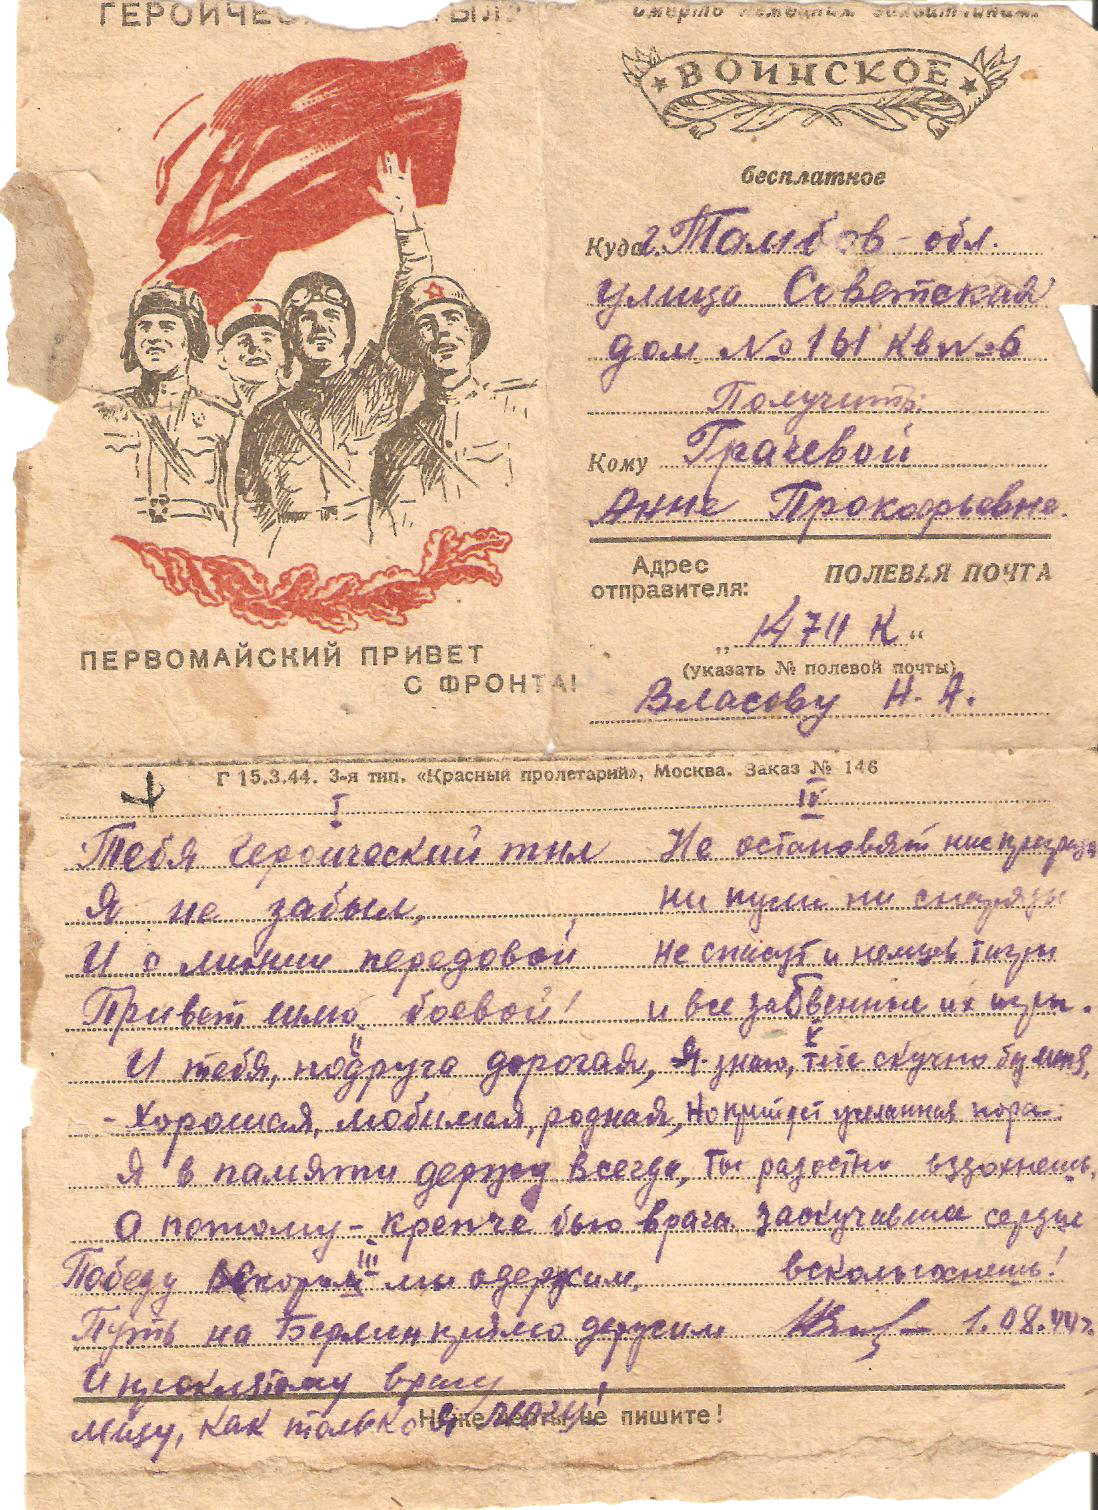 ГЕРОИЧЕС
Смерть немецким захватчикам
ВОИНСКОЕ
бесплатное
Куда г. Тамбов - обл.
улица Советская
дом № 161 кв № 6
Получить:
Кому Грачевой
Анне Прокофьевне.
Адрес
отправителя:
ПОЛЕВАЯ ПОЧТА
„ 14711 К “
(указать № полевой почты)
Власову Н. А.
ПЕРВОМАЙСКИЙ ПРИВЕТ
С ФРОНТА!
Г 15.3.44. 3-я тип. «Красный пролетарий», Москва. Заказ № 146
I
Тебя героический тыл
Я не забыл,
И с линии передовой
Привет шлю боевой!
II
И тебя, подруга дорогая,
- Хорошая, любимая, родная,
Я в памяти держу всегда,
А потому - крепче бью врага.
III
Победу вскоре мы одержим,
Путь на Берлин прямо держим
И проклятому врагу
Мщу, как только я могу!
IV
Не остановят ние преграды
ни пули ни снаряды
Не спасут и немцев тигры
и все их игры.
V
Я знаю, тебе скучно без меня,
Но придет желанная пора:
Ты радостно вздохнешь,
Заскучавшее сердце
всколыхнешь!
1.08.44г.
Ниже черты не пишите!